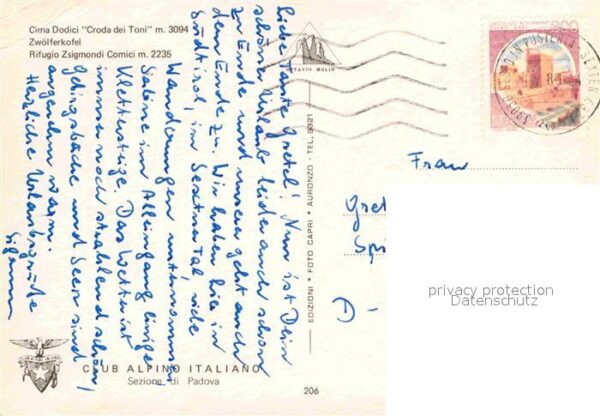 Cima Dodici "Croda dei Toni" m. 3094
Zwölferkofel
Rifugio Zsigmondi Comici m. 2235
Liebe Tante Gretel! Nun ist Dein
schöner Urlaub leider auch schon
zu Ende und unserer geht auch
dem Ende zu. Wir haben hier in
Südtirol, im Sextental viele
Wanderungen unternommen
Sabine im Alleingang einige
Klettersteige. Das Wetter ist
immer noch strahlend schön,
Gebirgsbäche und Seen sind
angenehm warm.
Herzliche Urlaubsgrüße
OTTAVIO MOLIN
EDIZIONI • FOTO CAPRI • AURONZO - TEL. 9321
Frau
Gret
Spi
privacy protection
Datenschutz
CLUB ALPINO ITALIANO
Sezione di Padova
206